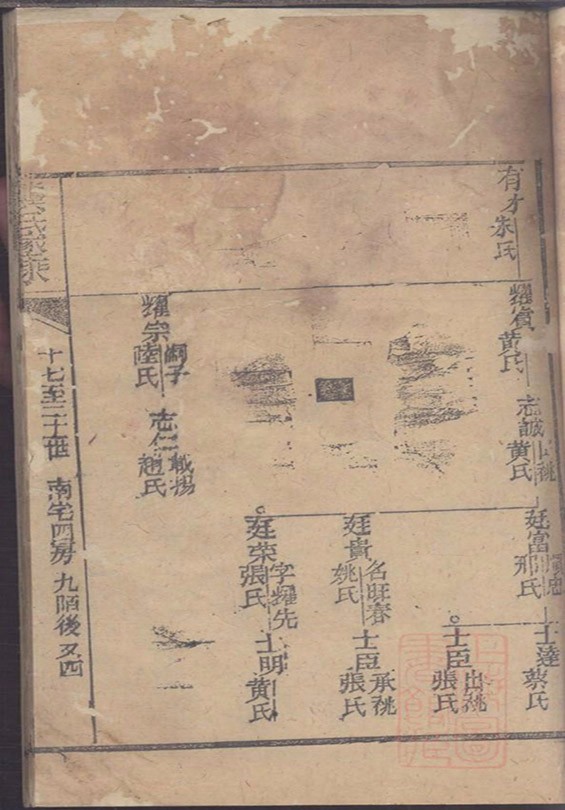 有才 朱氏
耀宗 嗣子 陸氏
黄氏
志誠 祧 黄氏
志仁 載揚 趙氏
廷富 邢氏
廷貴 名旺春 姚氏
廷荣 字耀先 張氏
士達 蔡氏
士臣 出祧 張氏
士臣 承祧 張氏
士明 黄氏
氏家乘
十七至二十世 南宅四房 九陌後 又四